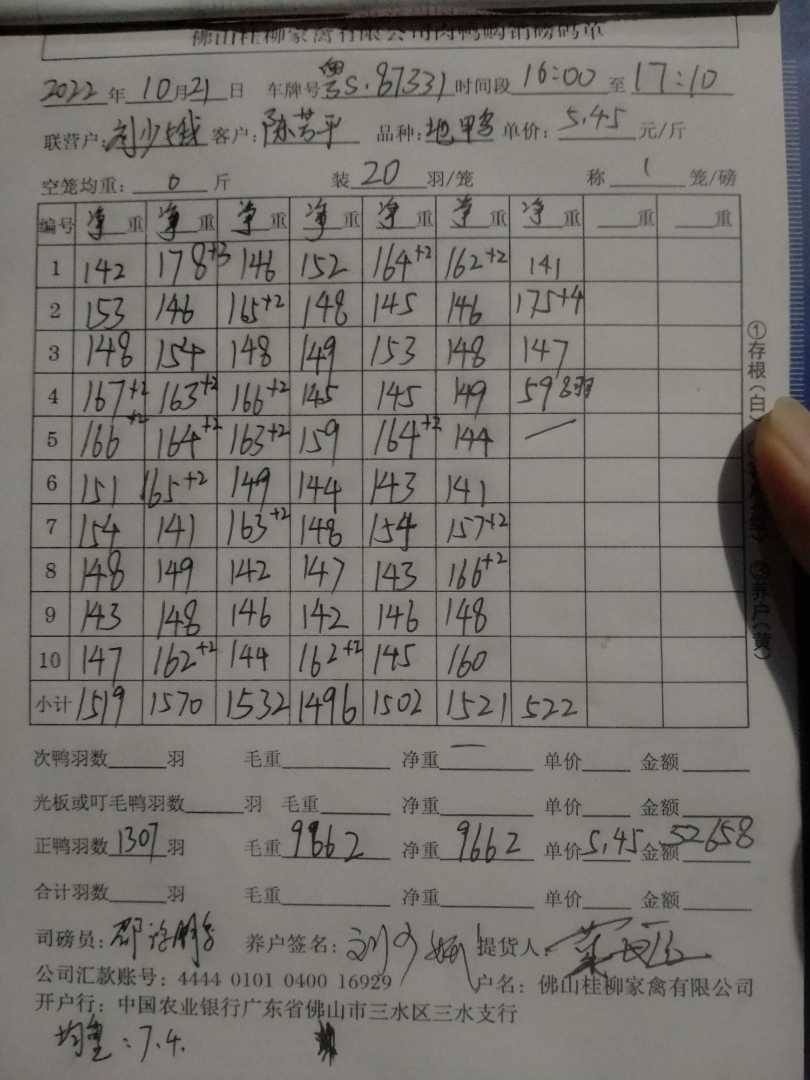 佛山桂柳家禽有限公司肉鸭购销磅码单
2022年10月21日 车牌号粤S.87331时间段16:00至17:10
联营户: 客户:陈芳平 品种:地鸭 单价:5.45元/斤
空笼均重:0斤 装20羽/笼 称1笼/磅
编号 净重 净重 净重 净重 净重 净重 净重 重 重
1 142 178+3 146 152 164+2 162+2 141
2 153 146 165+2 148 145 146 175+4
3 148 154 148 149 153 148 147
4 167+2 163+2 166+2 145 145 149 59 8羽
5 166+2 164+2 163+2 159 164+2 144 —
6 151 165+2 149 144 143 141
7 154 141 163+2 148 154 157+2
8 148 149 142 147 143 166+2
9 143 148 146 142 146 148
10 147 162+2 144 162+2 145 160
小计 1519 1570 1532 1496 1502 1521 522
①存根(白)
③养户(黄)
次鸭羽数 羽 毛重 净重 — 单价 金额
光板或叮毛鸭羽数 羽 毛重 净重 单价 金额
正鸭羽数1307羽 毛重9662 净重9662 单价5.45 金额52658
合计羽数 羽 毛重 净重 单价 金额
司磅员: 养户签名: 提货人:
公司汇款账号: 4444 0101 0400 16929 户名: 佛山桂柳家禽有限公司
开户行: 中国农业银行广东省佛山市三水区三水支行
均重:7.4.